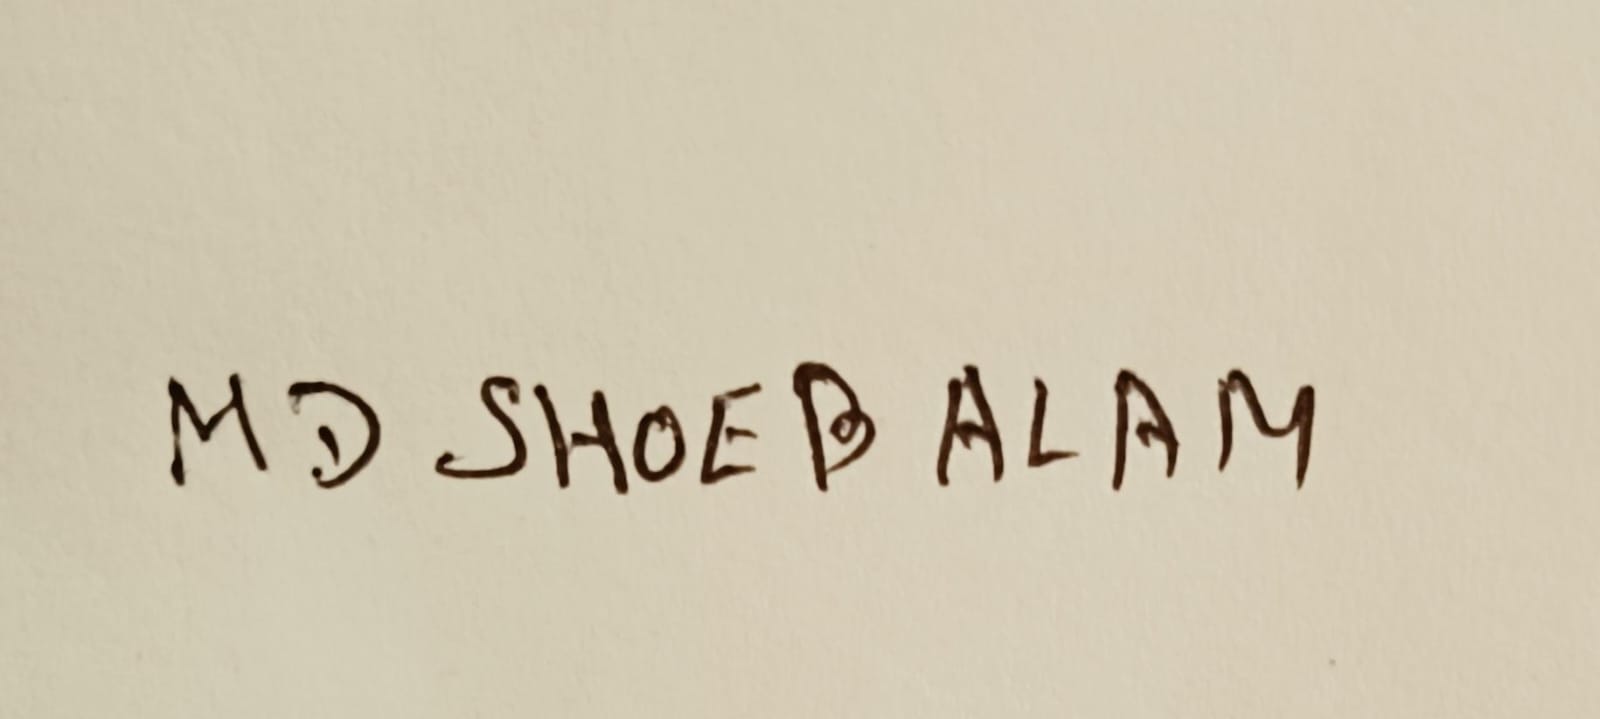 MD SHOEB ALAM